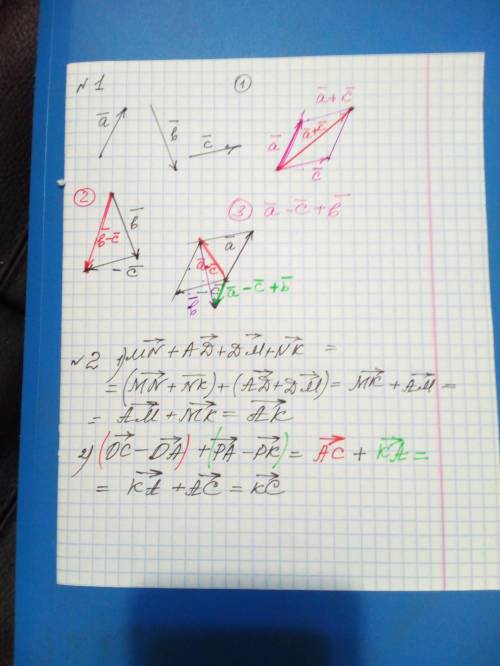 №1
①
a̅ + c̅
a̅ b̅ c̅ a̅ a̅+c̅ c̅
② ③ a̅ - c̅ + b̅
b̅-c̅ b̅ -c̅
a̅ a̅-c̅ -c̅ a̅-c̅+b̅ b̅
№2 1) M⃗N + A⃗D + D⃗M + N⃗K =
= (M⃗N + N⃗K) + (A⃗D + D⃗M) = M⃗K + A⃗M =
= A⃗M + M⃗K = A⃗K
2) (O⃗C - O⃗A) + (P⃗A - P⃗K) = A⃗C + K⃗A =
= K⃗A + A⃗C = K⃗C